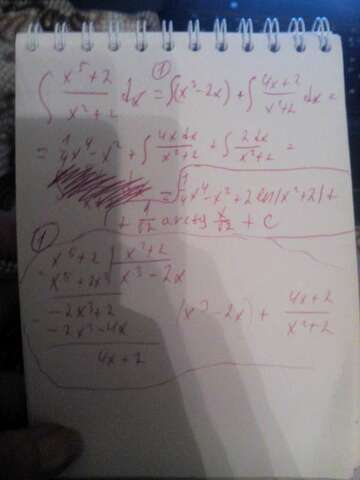 ∫ x⁵+2 / x²+2 dx =① ∫(x³-2x) + ∫ 4x+2 / x²+2 dx =
= 1/4 x⁴ - x² + ∫ 4x dx / x²+2 + ∫ 2dx / x²+2 =
= 1/4 x⁴ - x² + 2 ln(x²+2) +
+ 1/√2 arctg x/√2 + C
①
x⁵+2 | x²+2
x⁵+2x³ | x³-2x
-2x³+2
-2x³-4x
4x+2
(x³-2x) + 4x+2 / x²+2